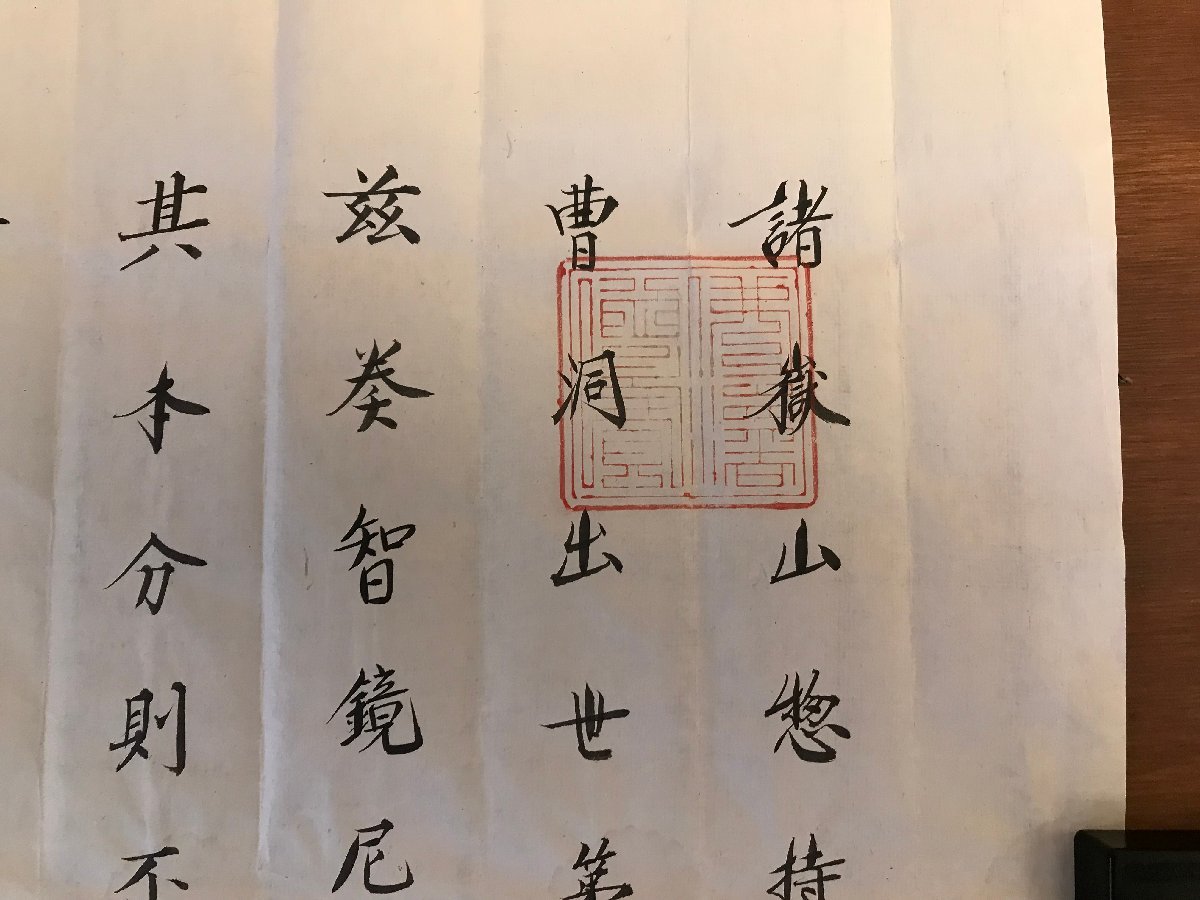 諸嶽山惣持
曹洞出世第
茲癸智鏡尼
其本分則不